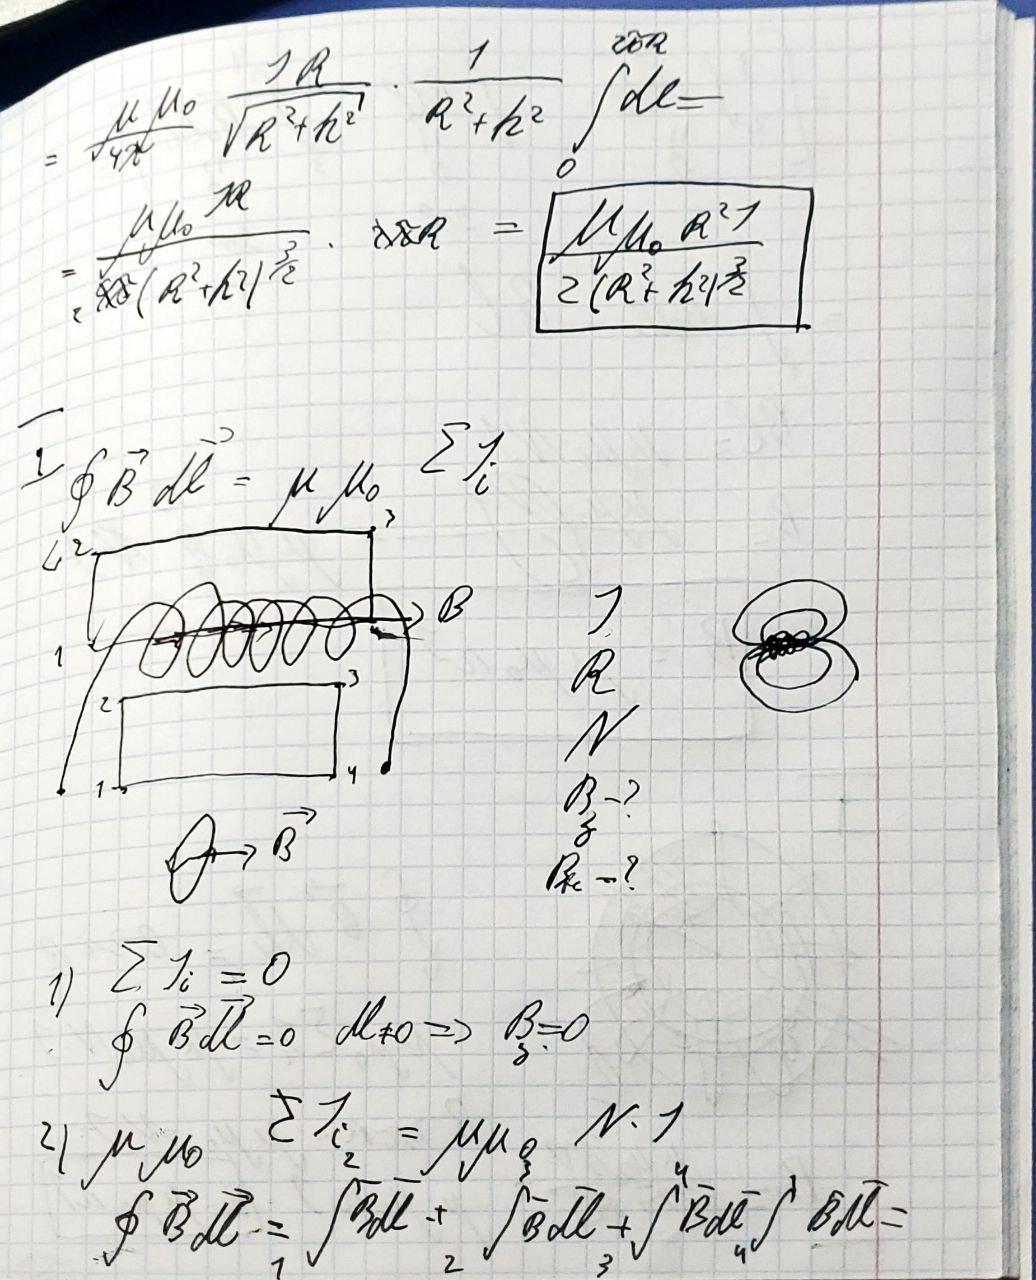 = μμ₀/4π · IR/√(R²+h²) · 1/(R²+h²) ∫₀^{2πR} dl =
= μμ₀ IR / 2 (R²+h²)^{3/2} · R = μμ₀ R² I / 2 (R²+h²)^{3/2}
∮ B⃗ dl⃗ = μμ₀ Σ I_i
L 2 3
1 B
2 3
1 4
B⃗
I
R
N
B -?
B -?
1) Σ I_i = 0
∮ B⃗ dl⃗ = 0 dl ≠ 0 => B = 0
2) μμ₀ Σ I_i = μμ₀ N · I
∮ B⃗ dl⃗ = ∫₁² B⃗ dl⃗ + ∫₂³ B⃗ dl⃗ + ∫₃⁴ B⃗ dl⃗ ∫₄¹ B⃗ dl⃗ =